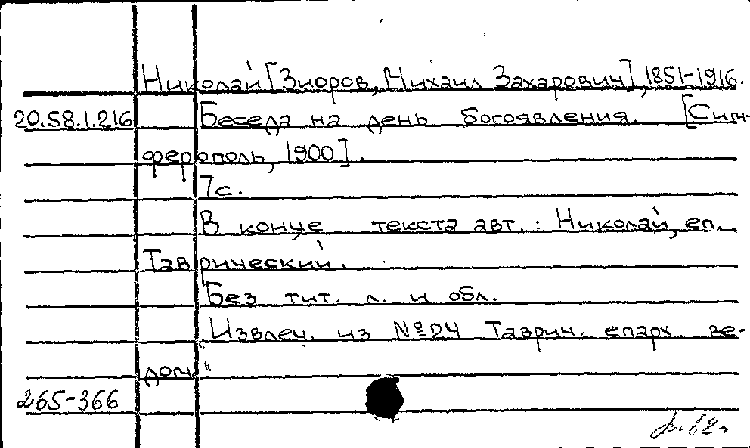 Николай [Зиоров, Михаил Захарович], 1851-1916.
20.58.1.216 Беседа на день богоявления. [Сим-
ферополь, 1900].
7с.
В конце текста авт.: Николай, еп.
Таврический.
Без тит. л. и обл.
Извлеч. из №24 "Таврич. епарх. ве-
дом."
265-366